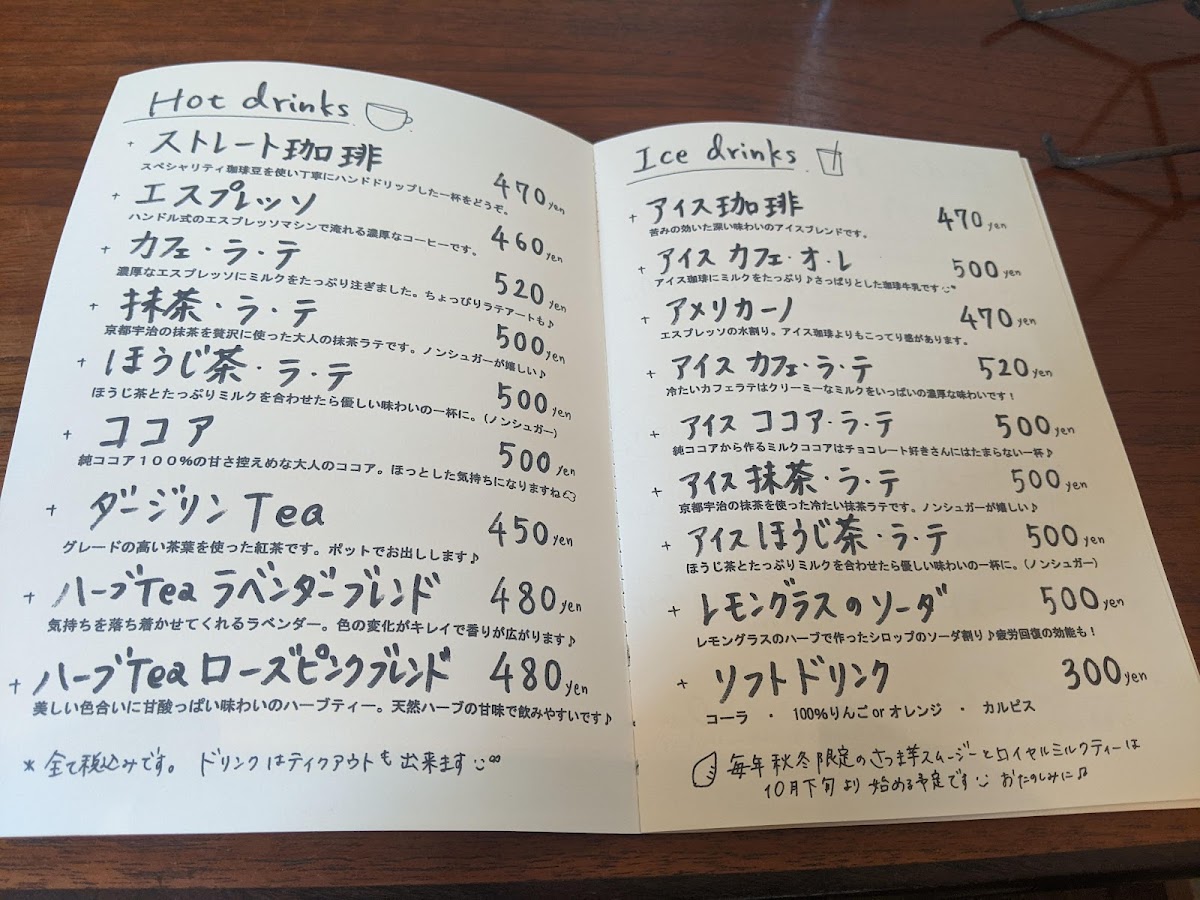 Hot drinks
+ ストレート珈琲 470yen
スペシャリティ珈琲豆を使い丁寧にハンドドリップした一杯をどうぞ。
+ エスプレッソ 460yen
ハンドル式のエスプレッソマシンで淹れる濃厚なコーヒーです。
+ カフェ・ラ・テ 520yen
濃厚なエスプレッソにミルクをたっぷり注ぎました。ちょっぴりラテアートも♪
+ 抹茶・ラ・テ 500yen
京都宇治の抹茶を贅沢に使った大人の抹茶ラテです。ノンシュガーが嬉しい♪
+ ほうじ茶・ラ・テ 500yen
ほうじ茶とたっぷりミルクを合わせたら優しい味わいの一杯に。(ノンシュガー)
+ ココア 500yen
純ココア100%の甘さ控えめな大人のココア。ほっとした気持ちになりますね
+ ダージリン Tea 450yen
グレードの高い茶葉を使った紅茶です。ポットでお出しします♪
+ ハーブTea ラベンダーブレンド 480yen
気持ちを落ち着かせてくれるラベンダー。色の変化がキレイで香りが広がります♪
+ ハーブTea ローズピンクブレンド 480yen
美しい色合いに甘酸っぱい味わいのハーブティー。天然ハーブの甘味で飲みやすいです♪
* 全て税込みです。 ドリンクはテイクアウトも出来ます
Ice drinks
+ アイス珈琲 470yen
苦みの効いた深い味わいのアイスブレンドです。
+ アイス カフェ・オ・レ 500yen
アイス珈琲にミルクをたっぷり♪さっぱりとした珈琲牛乳です
+ アメリカーノ 470yen
エスプレッソの水割り。アイス珈琲よりもこってり感があります。
+ アイス カフェ・ラ・テ 520yen
冷たいカフェラテはクリーミーなミルクをいっぱいの濃厚な味わいです!
+ アイス ココア・ラ・テ 500yen
純ココアから作るミルクココアはチョコレート好きさんにはたまらない一杯♪
+ アイス 抹茶・ラ・テ 500yen
京都宇治の抹茶を使った冷たい抹茶ラテです。ノンシュガーが嬉しい♪
+ アイス ほうじ茶・ラ・テ 500yen
ほうじ茶とたっぷりミルクを合わせたら優しい味わいの一杯に。(ノンシュガー)
+ レモングラスのソーダ 500yen
レモングラスのハーブで作ったシロップのソーダ割り♪疲労回復の効能も!
+ ソフトドリンク 300yen
コーラ ・ 100%りんごorオレンジ ・ カルピス
毎年秋冬限定のさつま芋スムージーとロイヤルミルクティーは
10月下旬より始める予定です おたのしみに♫